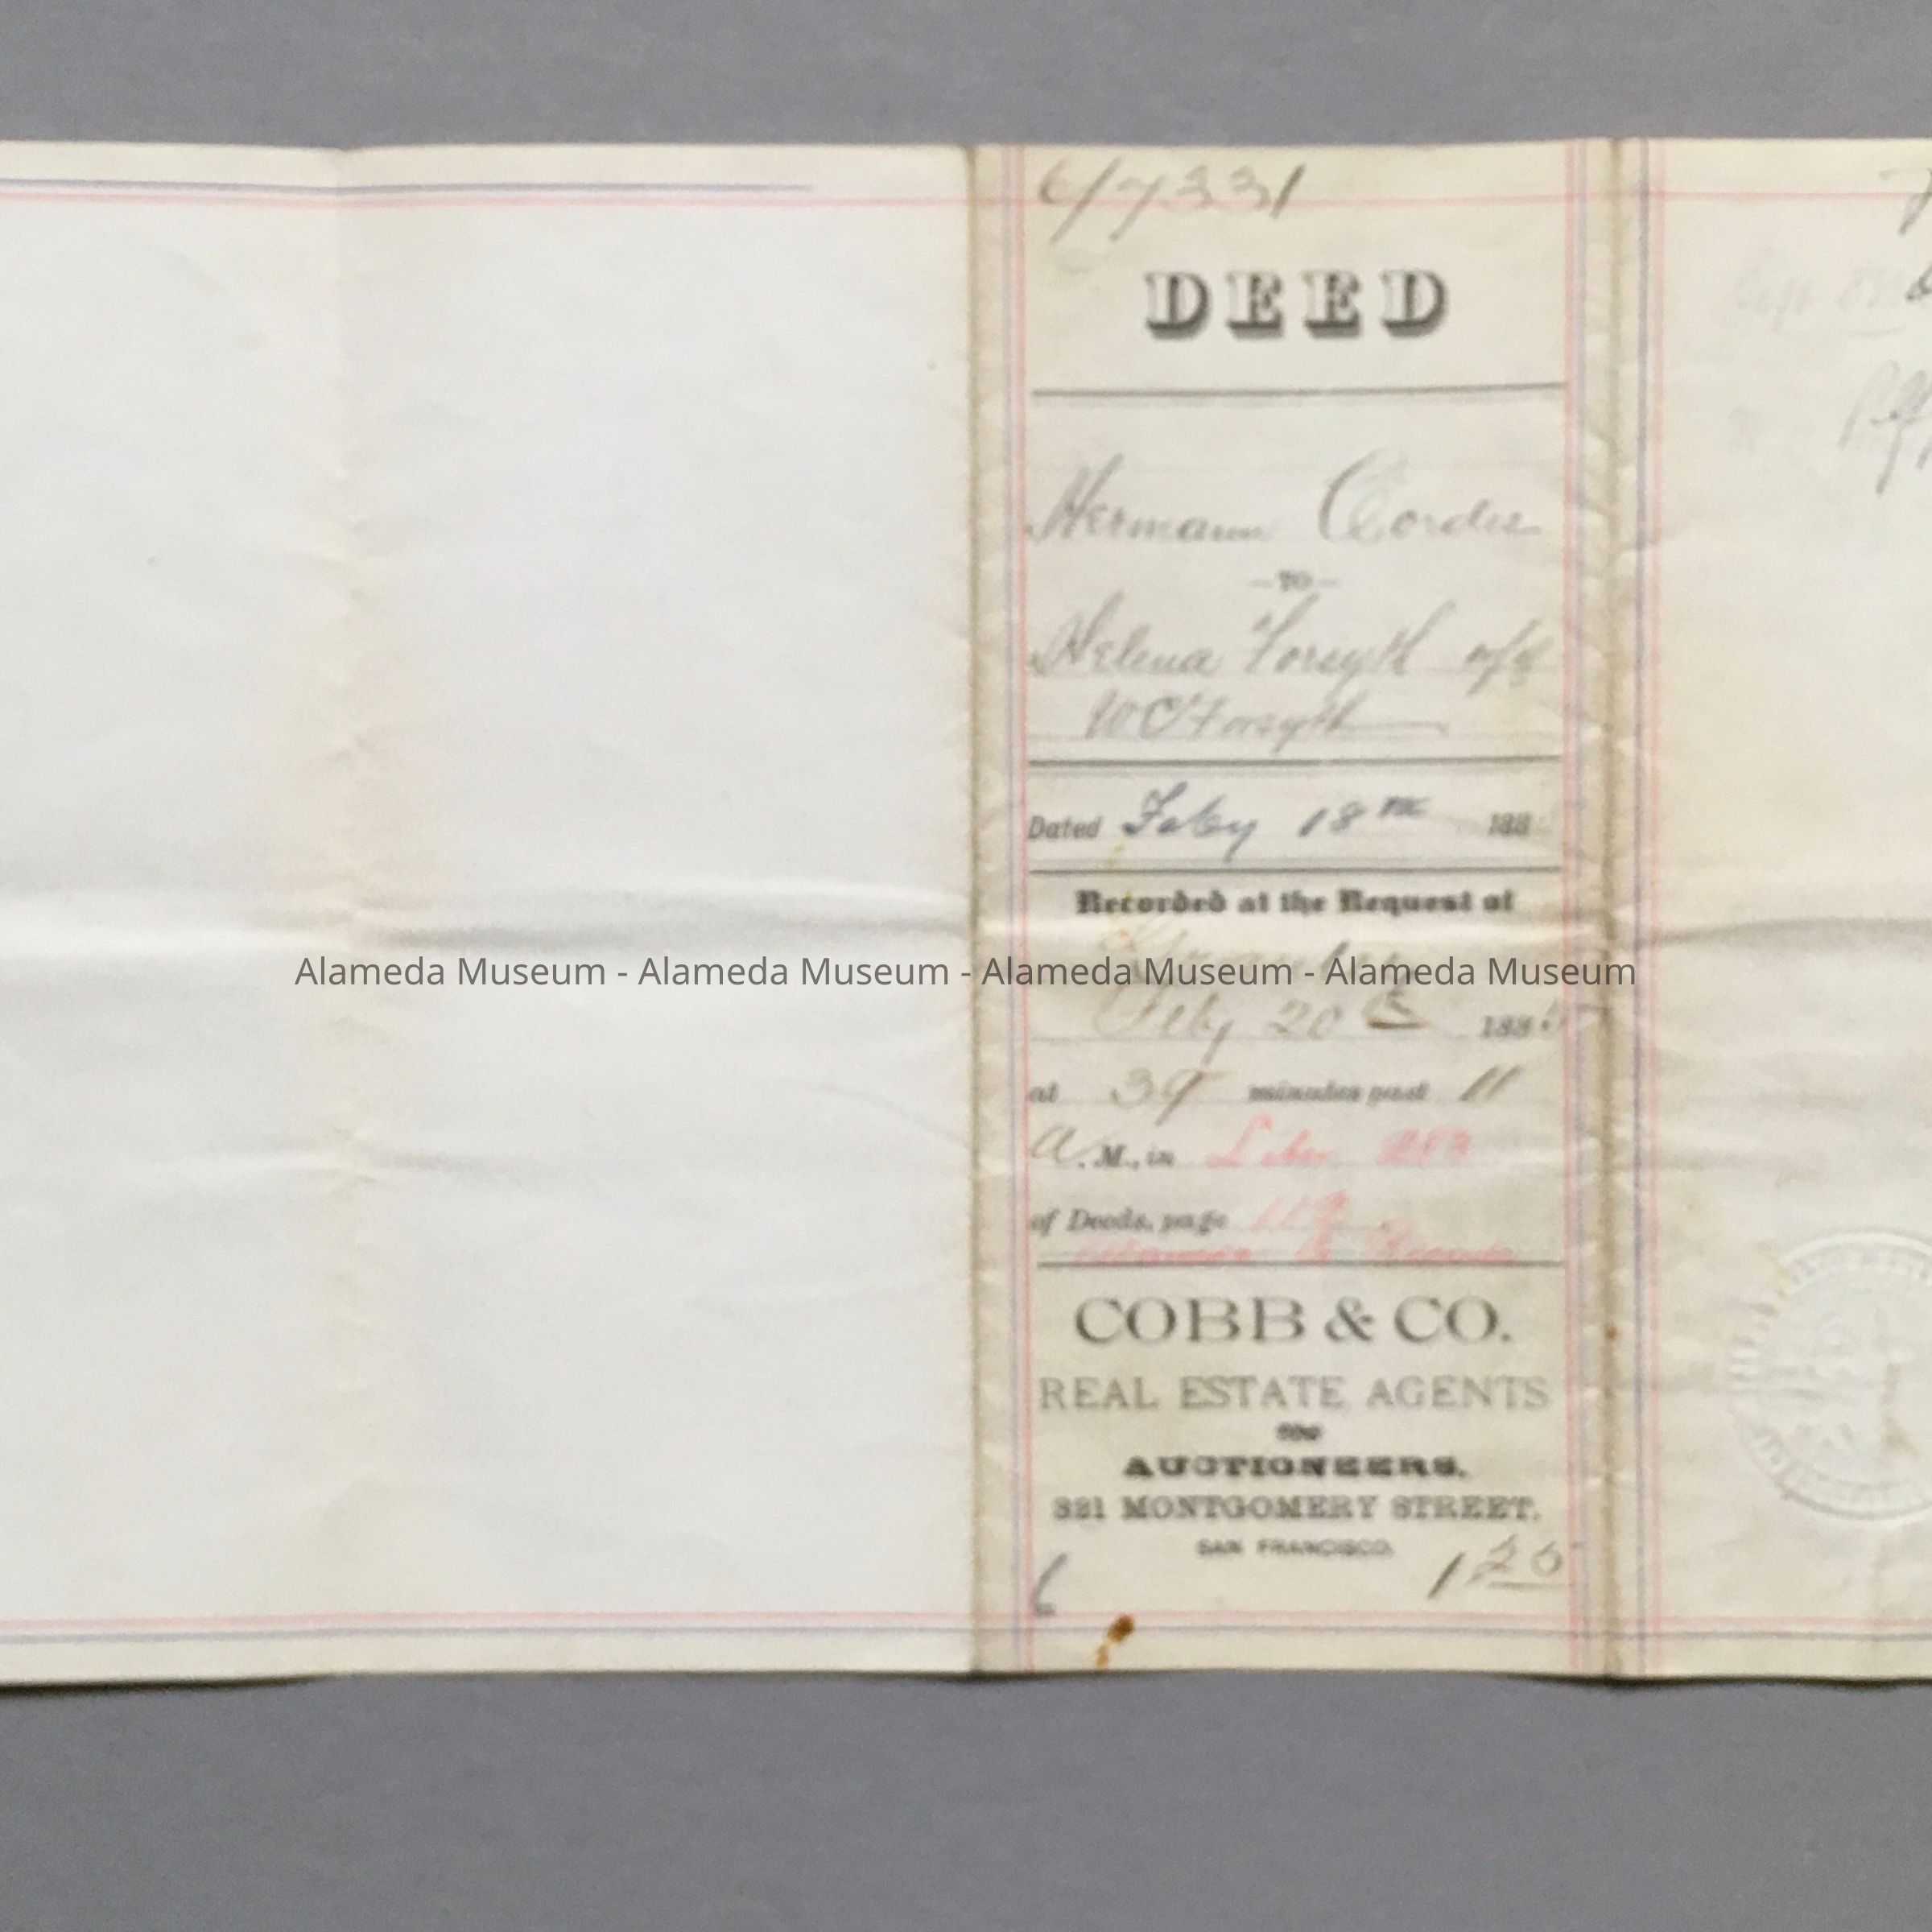 6/7331
DEED
Hermann Cordes
—TO—
Helena Forsyth wf of
W C Forsyth
Dated Feby 18th 188
Recorded at the Request of
Alameda Museum - Alameda Museum - Alameda Museum - Alameda Museum
Feby 20th 1885
at 39 minutes past 11
A. M., in Liber
of Deeds, page
COBB & CO.
REAL ESTATE AGENTS
AND
AUCTIONEERS.
321 MONTGOMERY STREET.
SAN FRANCISCO.
6 1 20